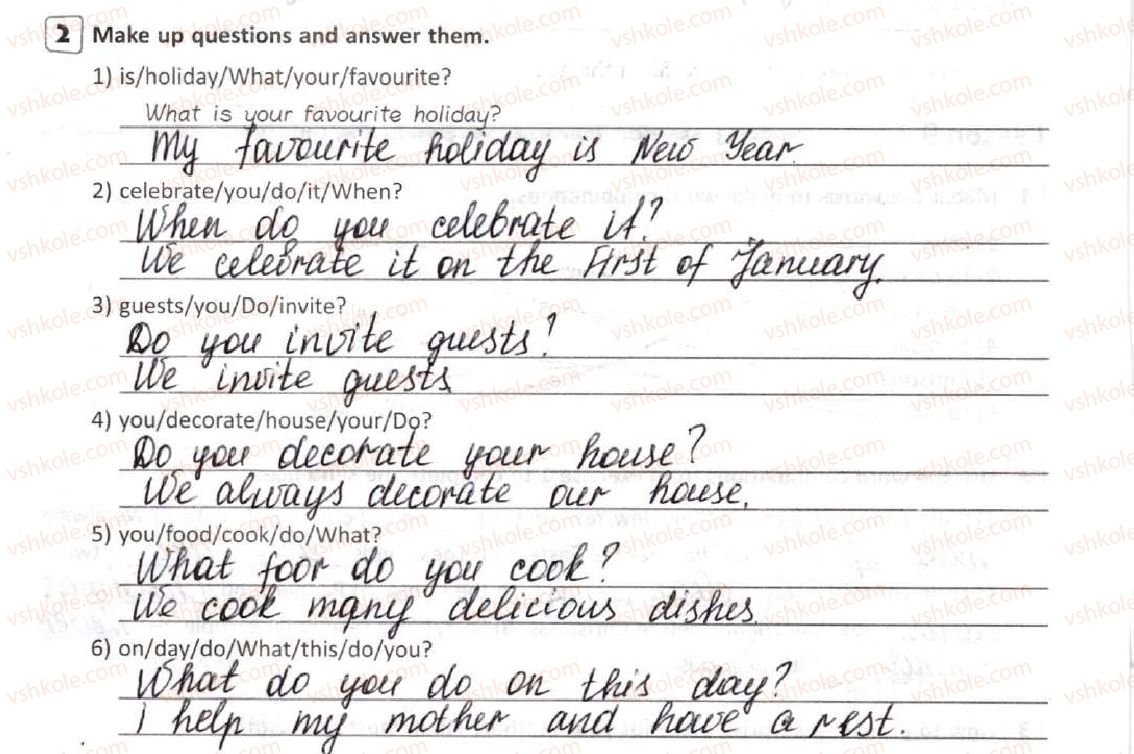 2 Make up questions and answer them.
1) is/holiday/What/your/favourite?
What is your favourite holiday?
My favourite holiday is New Year.
2) celebrate/you/do/it/When?
When do you celebrate it?
We celebrate it on the First of January.
3) guests/you/Do/invite?
Do you invite guests?
We invite guests
4) you/decorate/house/your/Do?
Do you decorate your house?
We always decorate our house.
5) you/food/cook/do/What?
What foor do you cook?
We cook many delicious dishes.
6) on/day/do/What/this/do/you?
What do you do on this day?
I help my mother and have a rest.